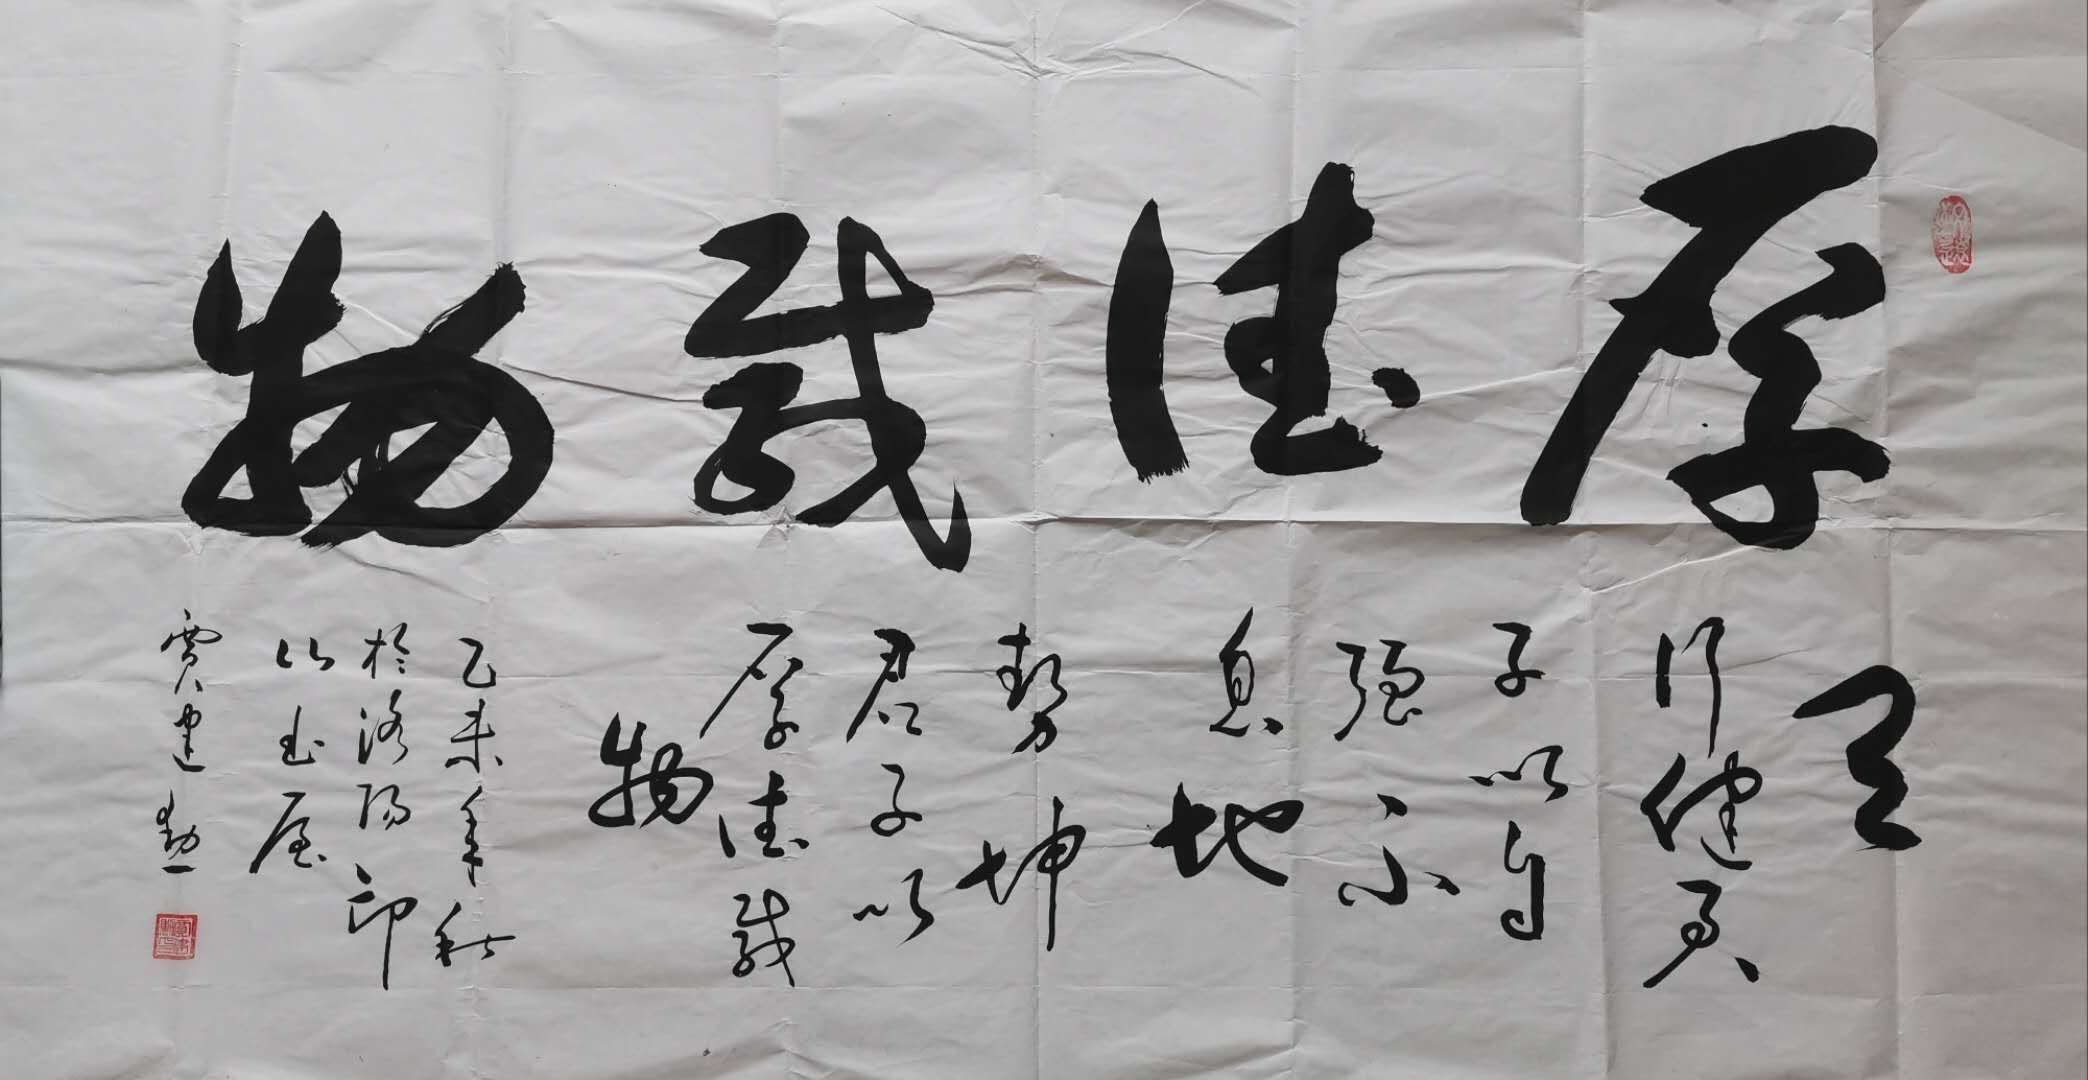 厚德载物
天
行健君
子以自
强不
息地
势坤
君子以
厚德载
物
乙未年秋
於洛阳
山房
贾建勋